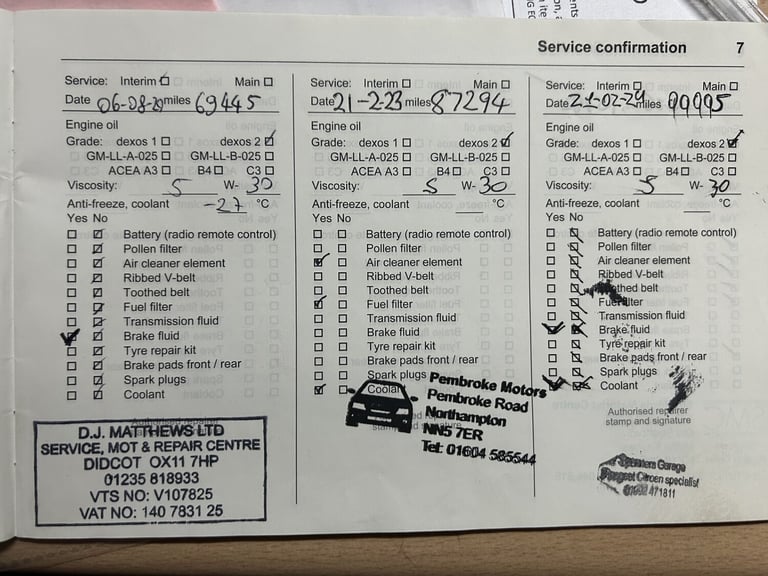 Service confirmation 7
Service: Interim Main
Date 06-08-20 miles 69445
Engine oil
Grade: dexos 1 dexos 2
GM-LL-A-025 GM-LL-B-025
ACEA A3 B4 C3
Viscosity: 5 W- 30
Anti-freeze, coolant -27 °C
Yes No
Battery (radio remote control)
Pollen filter
Air cleaner element
Ribbed V-belt
Toothed belt
Fuel filter
Transmission fluid
Brake fluid
Tyre repair kit
Brake pads front / rear
Spark plugs
Coolant
D.J. MATTHEWS LTD
SERVICE, MOT & REPAIR CENTRE
DIDCOT OX11 7HP
01235 818933
VTS NO: V107825
VAT NO: 140 7831 25
Service: Interim Main
Date 21-2-23 miles 87294
Engine oil
Grade: dexos 1 dexos 2
GM-LL-A-025 GM-LL-B-025
ACEA A3 B4 C3
Viscosity: 5 W- 30
Anti-freeze, coolant °C
Yes No
Battery (radio remote control)
Pollen filter
Air cleaner element
Ribbed V-belt
Toothed belt
Fuel filter
Transmission fluid
Brake fluid
Tyre repair kit
Brake pads front / rear
Spark plugs
Coolant
stamp and signature
Pembroke Motors
Pembroke Road
Northampton
NN5 7ER
Tel: 01604 585544
Service: Interim Main
Date 21-02-24 miles 99995
Engine oil
Grade: dexos 1 dexos 2
GM-LL-A-025 GM-LL-B-025
ACEA A3 B4 C3
Viscosity: 5 W- 30
Anti-freeze, coolant °C
Yes No
Battery (radio remote control)
Pollen filter
Air cleaner element
Ribbed V-belt
Toothed belt
Fuel filter
Transmission fluid
Brake fluid
Tyre repair kit
Brake pads front / rear
Spark plugs
Coolant
Authorised repairer
stamp and signature
Garage
Peugeot Citroen specialist
471811